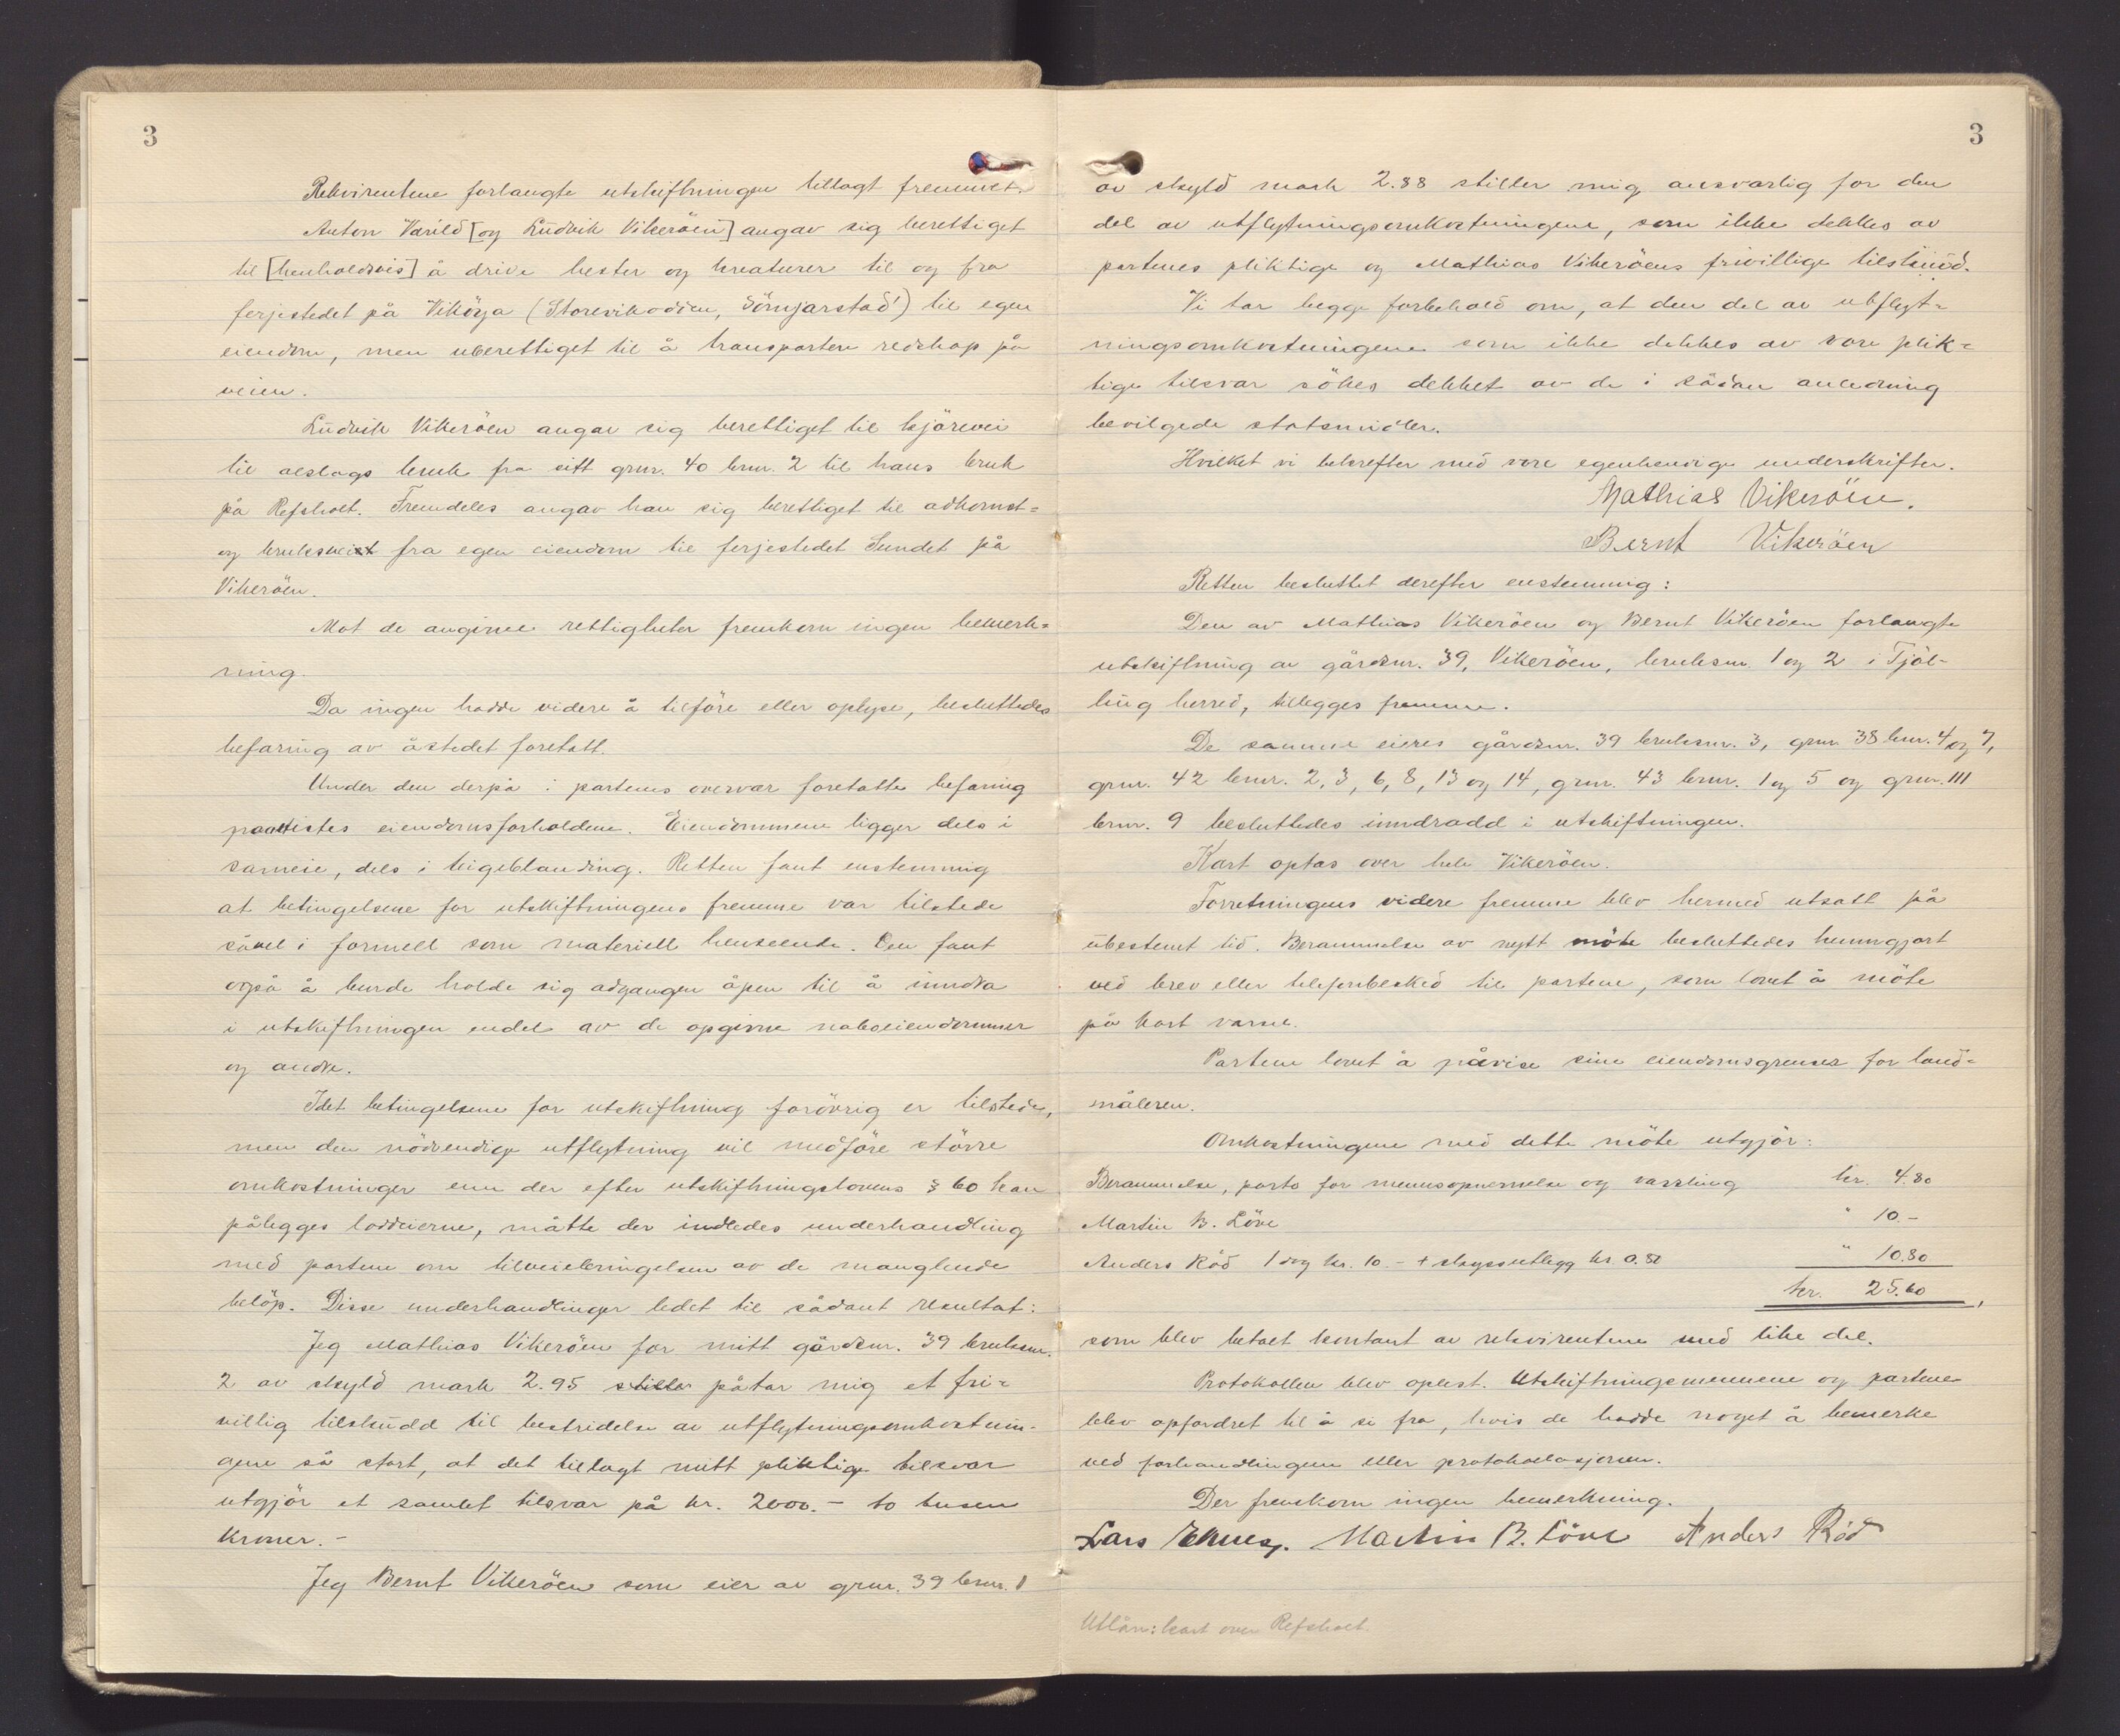 3
Rekvirentene forlangte utskiftningen tillagt fremme.
Anton Varild [og Ludvik Vikeröen] angav sig berettiget
til [henholdsvis] å drive hester og kreaturer til og fra
ferjestedet på Vikøya (Storevikodden, Sömjarstad') til egen
eiendom, men uberettiget til å transportere redskap på
veien.
Ludvik Vikeröen angav sig berettiget til kjörevei
til alslags bruk fra sitt grnr. 40 brnr. 2 til hans bruk
på Refsholt. Fremdeles angav han sig berettiget til adkomst-
og bruksvei fra egen eiendom til ferjestedet Sundet på
Vikeröen.
Mot de angivne rettigheter fremkom ingen bemerk-
ning.
Da ingen hadde videre å tilföre eller oplyse, besluttedes
befaring av åstedet foretatt.
Under den derpå i partenes overvær foretatte befaring
påvistes eiendomsforholdene. Eiendommene ligger dels i
sameie, dels i teigeblanding. Retten fant enstemmig
at betingelsene for utskiftningens fremme var tilstede
såvel i formell som materiell henseende. Den fant
også å burde holde sig adgangen åpen til å inndra
i utskiftningen endel av de opgivne naboeiendommer
og andre.
Idet betingelsene for utskiftning forövrig er tilstede,
men den nödvendige utflytning vil medföre större
omkostninger enn der efter utskiftningslovens § 60 kan
pålegges loddeierne, måtte der innledes underhandling
med partene om tilveiebringelsen av de manglende
belöp. Disse underhandlinger ledet til sådant resultat:
Jeg Mathias Vikeröen for mitt gårdsnr. 39 bruksnr.
2 av skyld mark 2.95 stiller påtar mig et fri-
villig tilskudd til bestridelse av utflytningsomkostnin-
gene så stort, at det tillagt mitt pliktige tilsvar
utgjör et samlet tilsvar på kr. 2000.- to tusen
kroner.-
Jeg Bernt Vikeröen som eier av grnr. 39 brnr. 1
3
av skyld mark 2.88 stiller mig ansvarlig for den
del av utflytningsomkostningene, som ikke dekkes av
partenes pliktige og Mathias Vikeröens frivillige tilskudd.
Vi tar begge forbehold om, at den del av utflyt-
ningsomkostningene som ikke dekkes av vore plik-
tige tilsvar sökes dekket av de i sådan anledning
bevilgede statsmidler.
Hvilket vi bekrefter med vore egenhendige underskrifter.
Mathias Vikeröen.
Bernt Vikeröen
Retten besluttet derefter enstemmig:
Den av Mathias Vikeröen og Bernt Vikeröen forlangte
utskiftning av gårdsnr. 39, Vikeröen, bruksnr. 1 og 2 i Tjöl-
ling herred, tillegges fremme.
De samme eieres gårdsnr. 39 bruksnr. 3, grnr. 38 brnr. 4 og 7,
grnr. 42 brnr. 2, 3, 6, 8, 13 og 14, grnr. 43 brnr. 1 og 5 og grnr. 111
brnr. 9 besluttedes inndradd i utskiftningen.
Kart optas over hele Vikeröen.
Forretningens videre fremme blev hermed utsatt på
ubestemt tid. Berammelse av nytt möte besluttedes kunngjort
ved brev eller telefonbeskjed til partene, som lovet å möte
på kort varsel.
Partene lovet å påvise sine eiendomsgrenser for land-
måleren.
Omkostningene med dette möte utgjör:
Berammelse, porto for mennsopnevnelse og varsling kr. 4.80
Martin B. Löve " 10.-
Anders Röd 1 dag kr. 10.- + skyssutlegg kr 0.80 " 10.80
kr. 25.60,
som blev betalt kontant av rekvirentene med like del.
Protokollen blev oplest. Utskiftningsmennene og partene
blev opfordret til å si fra, hvis de hadde noget å bemerke
ved forhandlingen eller protokollasjonen.
Der fremkom ingen bemerkning.
Lars Martin B. Löve Anders Röd
Utlån: kart over Refsholt.